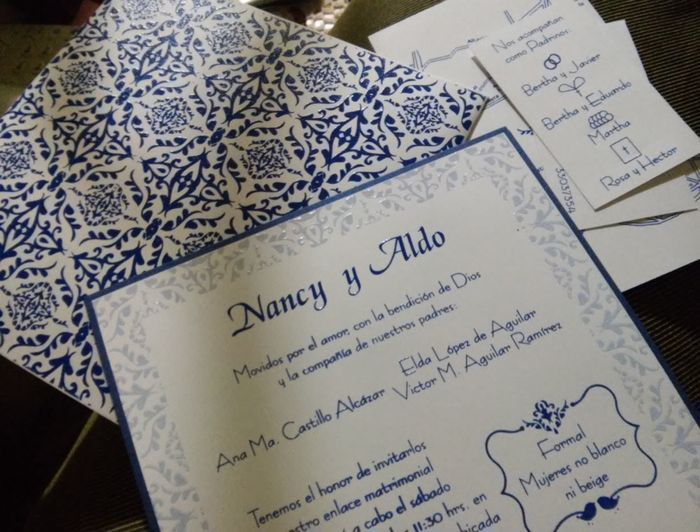 Nos acompañan
como Padrinos:
Bertha y Javier
Bertha y Eduardo
Martha
Rosa y Hector
33037354
Nancy y Aldo
Movidos por el amor, con la bendición de Dios
y la compañía de nuestros padres:
Ana Ma. Castillo Alcázar
Elda López de Aguilar
Victor M. Aguilar Ramírez
Tenemos el honor de invitarlos
enlace matrimonial
a cabo el sábado
11:30 hrs. en
Formal
Mujeres no blanco
ni beige